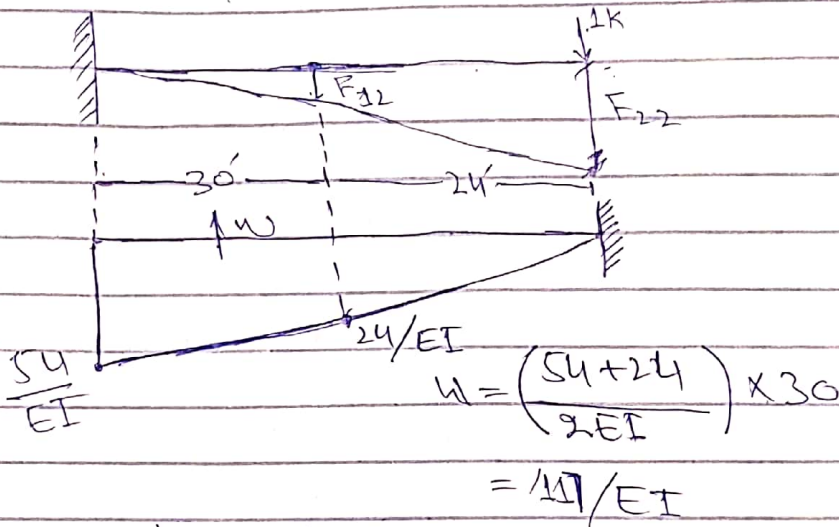 1K
F12
F22
30'
24'
w
24/EI
54/EI
w = (54+24/2EI) × 30
= 1170/EI